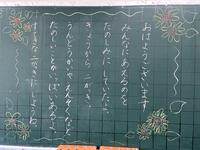 おはようございます
みんなにあえるのを
たのしみにしていたよ。
きょうから、二がっき。
うんどうかいや、えんそくなど
たのしいことがいっぱいあるよ。
すてきな二がっきにしようね。